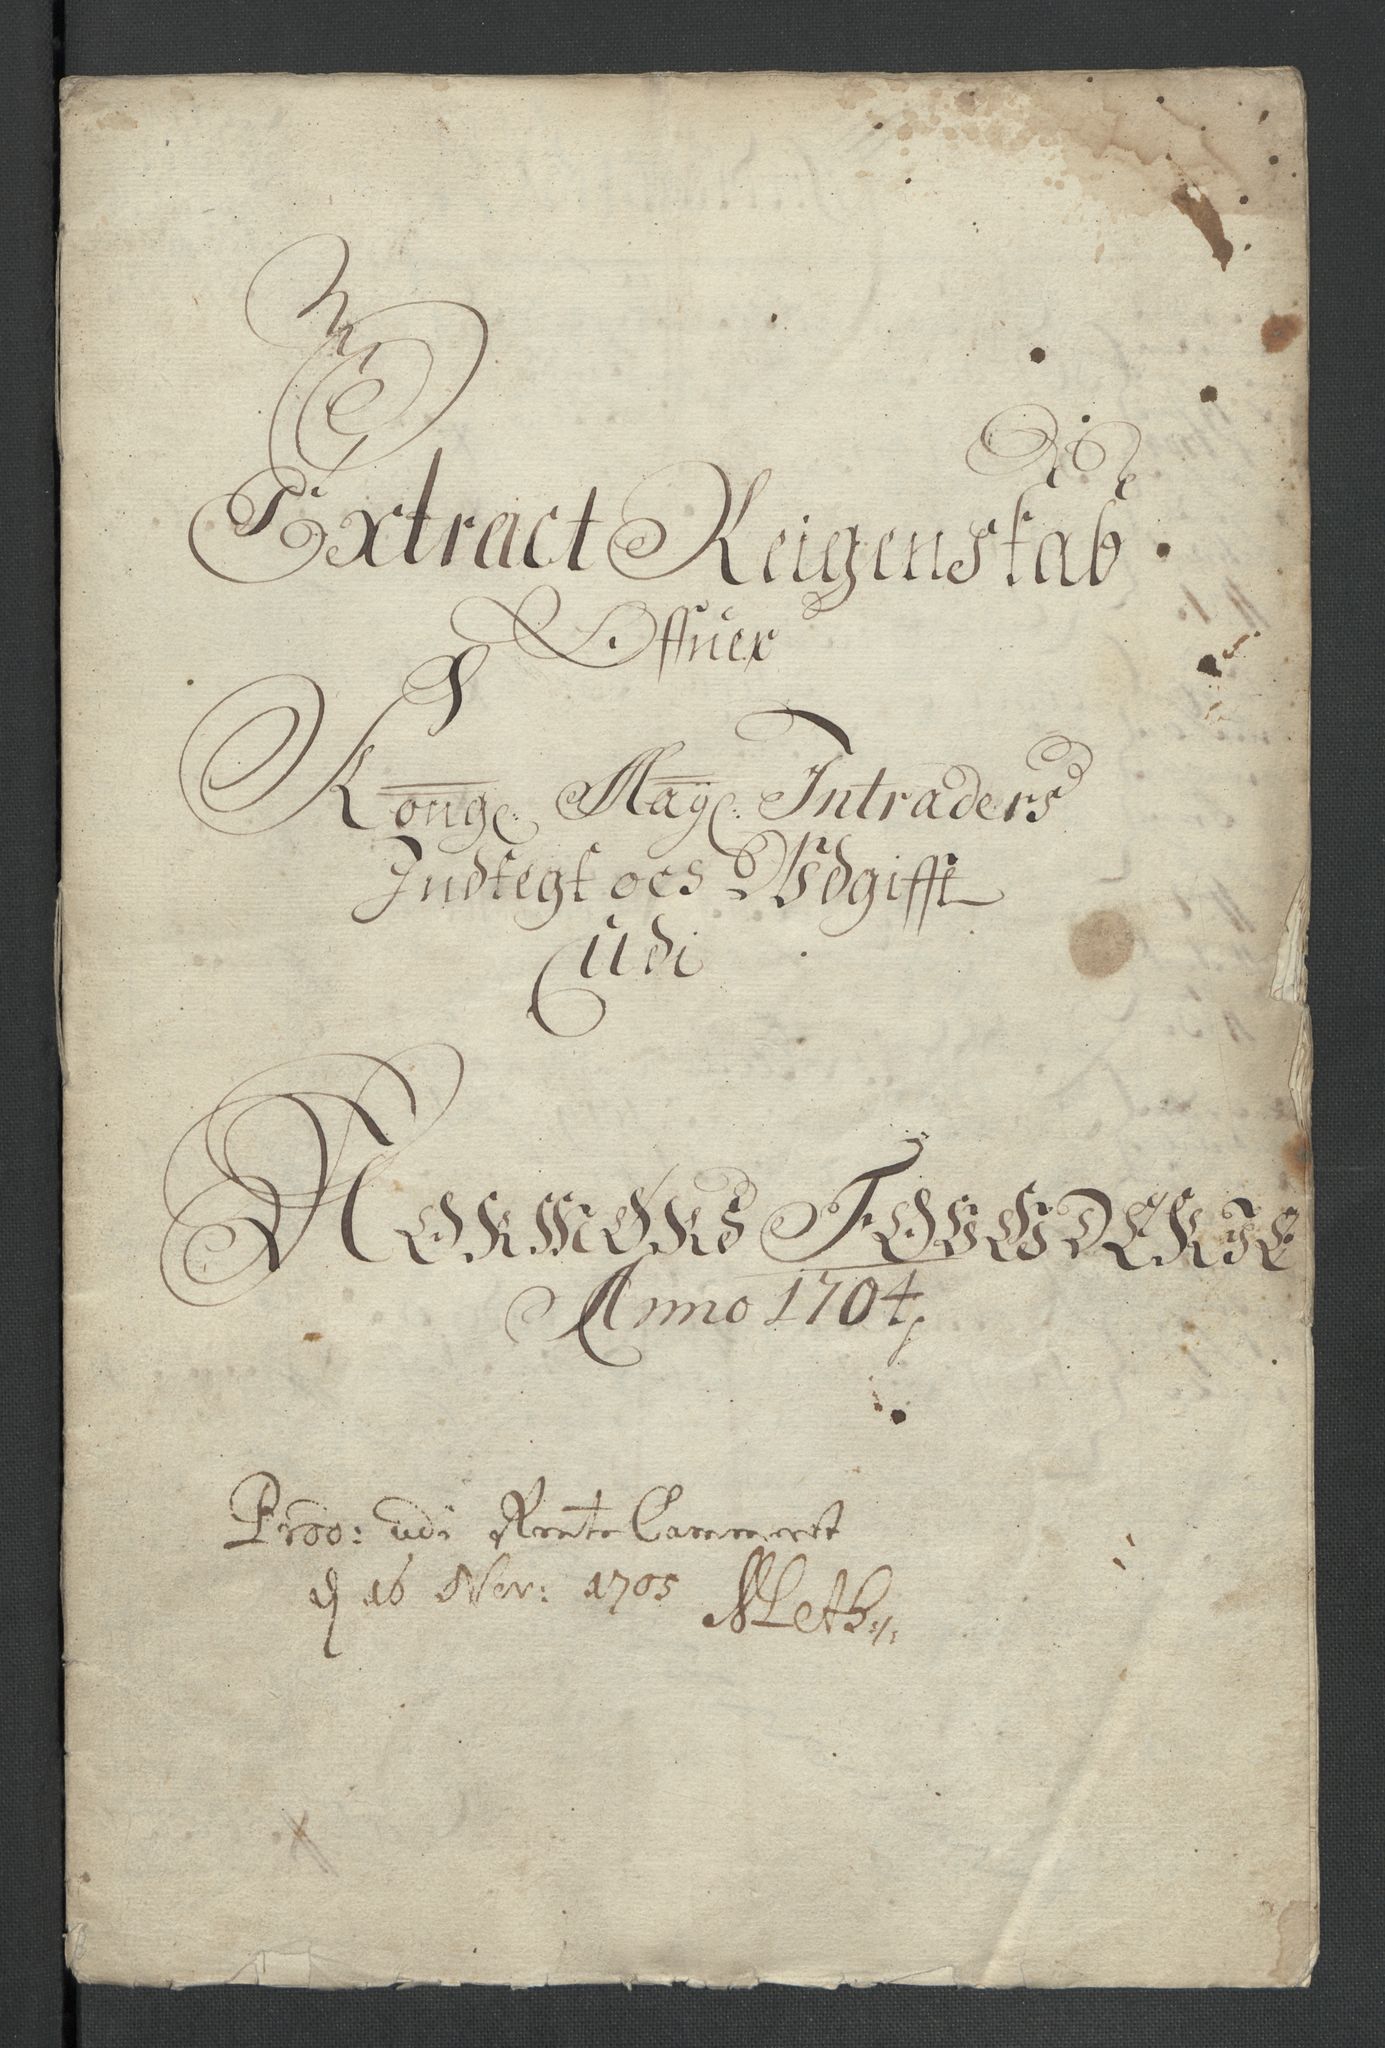 Extract Reigenskab
Offuer
Kong: May: Intraders
Indtegt och Wdgifft
udi
Normørs Fougderje
Anno 1704
Prod: udi Rente Cammeret
d 16 Novr: 1705